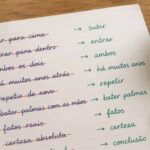 para cima → subir
entrar para dentro → entrar
ambos os dois → ambos
há muitos anos atrás → há muitos anos
repetir de novo → repetir
bater palmas com as mãos → bater palmas
fatos reais → fatos
certeza absoluta → certeza
→ conclusão